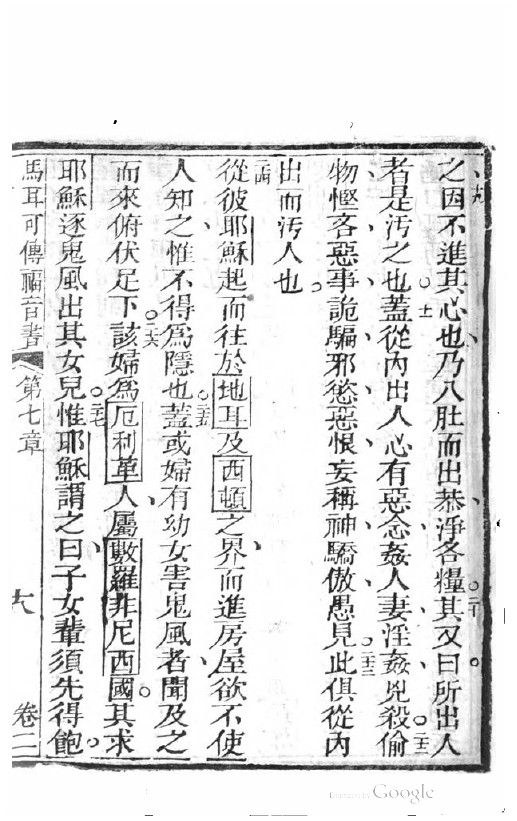 十九
之因不進其心也乃入肚而出恭淨各糧。二十其又曰所出人
者是污之也。二十一蓋從內出人心有惡念姦人妻淫姦兇殺。二十二偷
物慳吝惡事詭騙邪慾惡恨妄稱神驕傲愚見。二十三此俱從內
出而污人也。
二十四從彼耶穌起而往於地耳及西頓之界而進房屋欲不使
人知之惟不得為隱也。二十五蓋或婦有幼女害鬼風者聞及之
而來俯伏足下。二十六該婦為厄利革人屬數羅非尼西國。其求
耶穌逐鬼風出其女兒。二十七惟耶穌謂之曰子女輩須先得飽。
馬耳可傳福音書 第七章 卷二
Digitized by Google